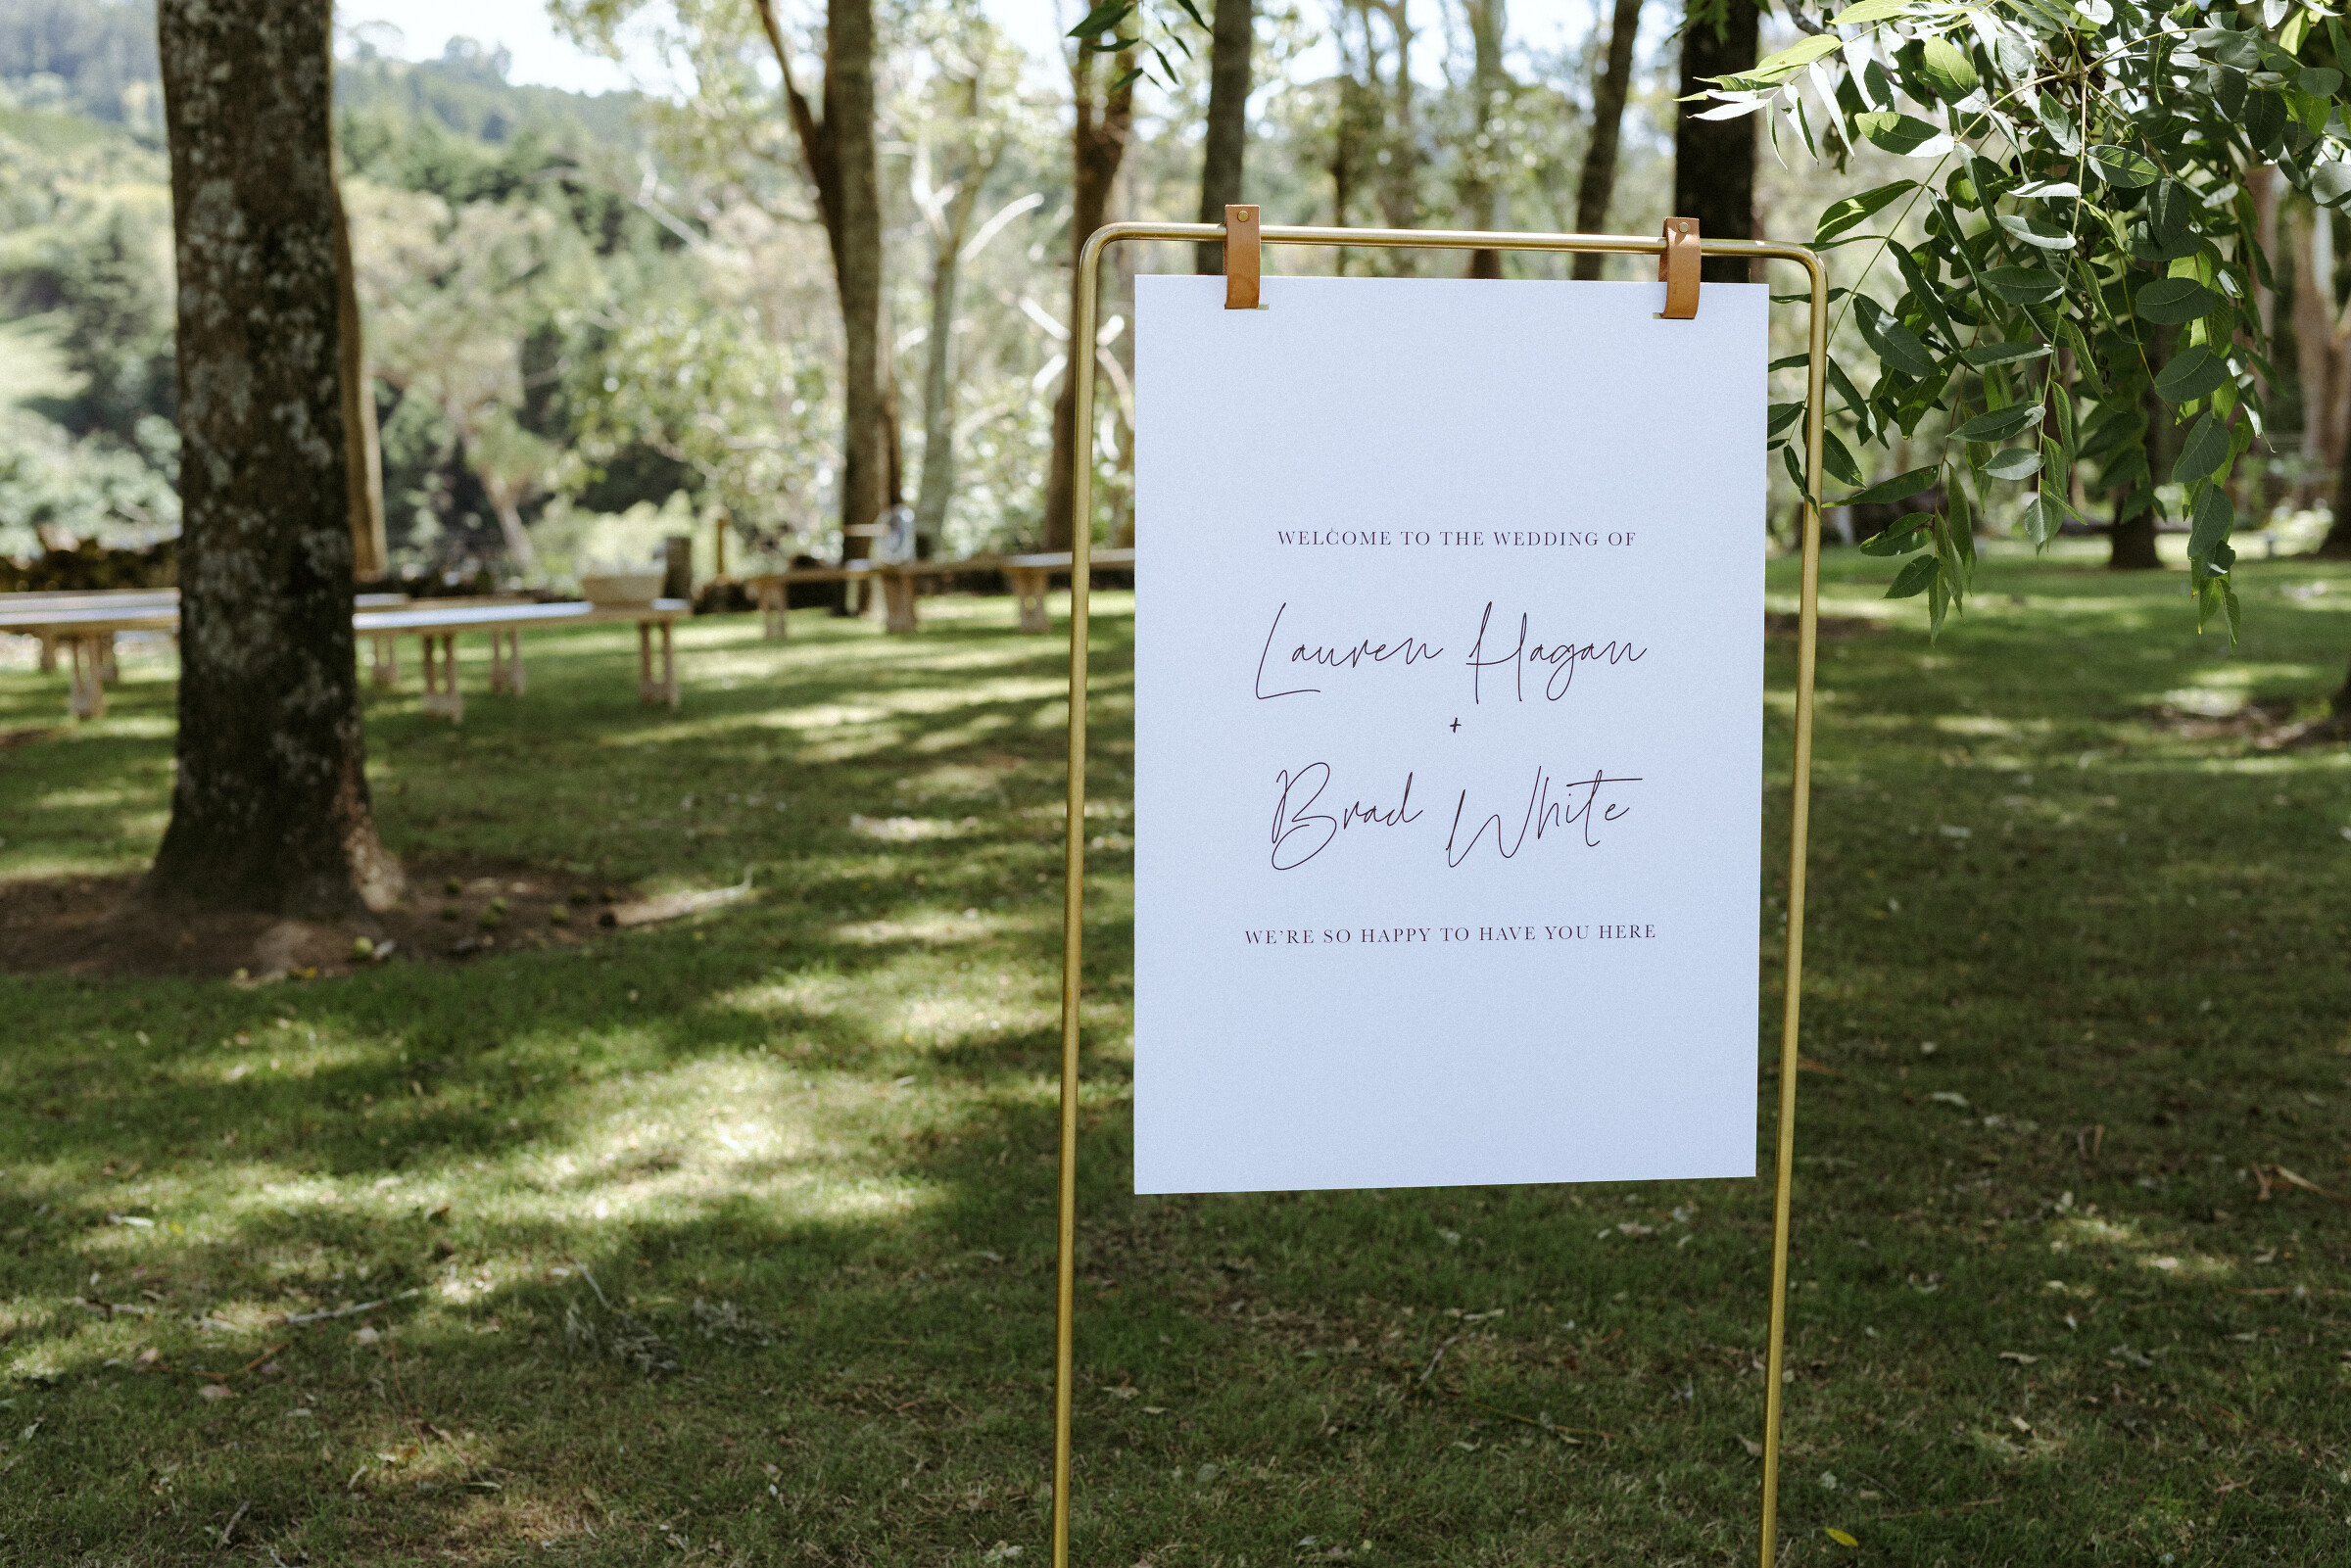 WELCOME TO THE WEDDING OF
Lauren Hagan
+
Brad White
WE'RE SO HAPPY TO HAVE YOU HERE